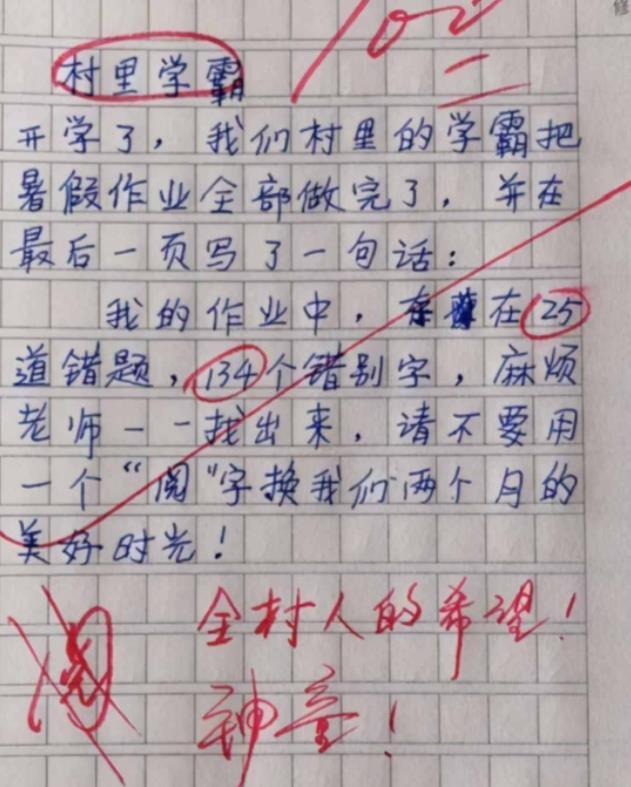 102
村里学霸
开学了，我们村里的学霸把
暑假作业全部做完了，并在
最后一页写了一句话：
我的作业中，存在25
道错题，134个错别字，麻烦
老师一一找出来，请不要用
一个“阅”字换我们两个月的
美好时光！
阅
全村人的希望！
神童！